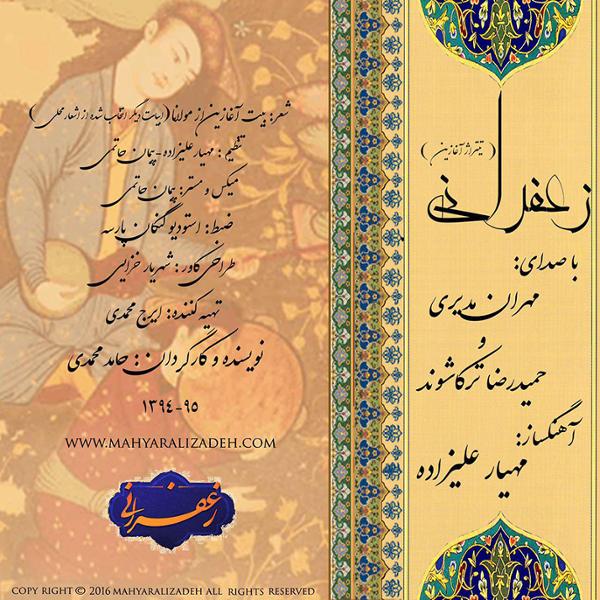 ( تیتراژ آغازین )
زعفرانی
با صدای:
مهران مدیری
و
حمیدرضا ترکاشوند
آهنگساز:
مهیار علیزاده
شعر: بیت آغازین از مولانا (ابیات دیگر انتخاب شده از اشعار محلی)
تنظیم : مهیار علیزاده-پیمان حاتمی
میکس و مستر: پیمان حاتمی
ضبط: استودیو کنگان پارسه
طراحی کاور : شهریار خزایی
تهیه کننده: ایرج محمدی
نویسنده و کارگردان : حامد محمدی
۱۳۹۴-۹۵
WWW.MAHYARALIZADEH.COM
زعفرانی
COPY RIGHT © 2016 MAHYARALIZADEH ALL RIGHTS RESERVED